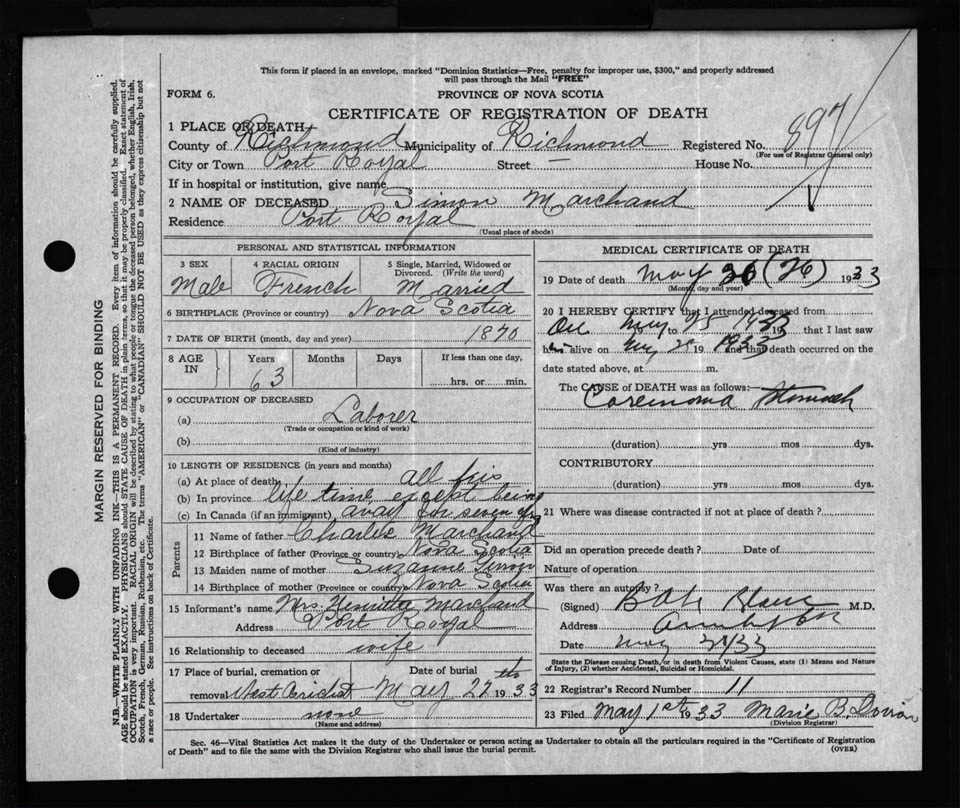 This form if placed in an envelope, marked "Dominion Statistics—Free, penalty for improper use, $300," and properly addressed
will pass through the Mail "FREE"
FORM 6.
PROVINCE OF NOVA SCOTIA
CERTIFICATE OF REGISTRATION OF DEATH
897
1 PLACE OF DEATH
County of Richmond Municipality of Richmond Registered No.
(For use of Registrar General only)
City or Town Port Royal Street — House No.
If in hospital or institution, give name
2 NAME OF DECEASED Simon Marchand
Residence Port Royal
(Usual place of abode)
PERSONAL AND STATISTICAL INFORMATION
3 SEX 4 RACIAL ORIGIN 5 Single, Married, Widowed or Divorced. (Write the word)
Male French Married
6 BIRTHPLACE (Province or country) Nova Scotia
7 DATE OF BIRTH (month, day and year) 1870
8 AGE IN Years Months Days If less than one day,
63 hrs. or min.
9 OCCUPATION OF DECEASED
(a) Laborer
(Trade or occupation or kind of work)
(b)
(Kind of industry)
10 LENGTH OF RESIDENCE (in years and months)
(a) At place of death all his
(b) In province life time except being
(c) In Canada (if an immigrant) away for seven yrs
Parents
11 Name of father Charlie Marchand
12 Birthplace of father (Province or country) Nova Scotia
13 Maiden name of mother Suzanne
14 Birthplace of mother (Province or country) Nova Scotia
15 Informant's name Mrs. Marchand
Address Port Royal
16 Relationship to deceased wife
17 Place of burial, cremation or removal West Arichat Date of burial May 27th 1933
18 Undertaker none
(Name and address)
MEDICAL CERTIFICATE OF DEATH
19 Date of death May 26 (26) 1933
(Month, day and year)
20 I HEREBY CERTIFY that I attended deceased from
May to 25 19 that I last saw
h alive on 19 1933 and that death occurred on the
date stated above, at m.
The CAUSE of DEATH was as follows:
Carcinoma Stomach
(duration) yrs mos dys.
CONTRIBUTORY
(duration) yrs mos dys.
21 Where was disease contracted if not at place of death?
Did an operation precede death? Date of
Nature of operation
Was there an autopsy?
(Signed) M.D.
Address
Date May /33
State the Disease Causing Death, or in death from Violent Causes, state (1) Means and Nature
of Injury, (2) whether Accidental, Suicidal or Homicidal.
22 Registrar's Record Number 11
23 Filed May 1st 1933 Marie B.
(Division Registrar)
Sec. 46—Vital Statistics Act makes it the duty of the Undertaker or person acting as Undertaker to obtain all the particulars required in the "Certificate of Registration
of Death" and to file the same with the Division Registrar who shall issue the burial permit.
(OVER)
MARGIN RESERVED FOR BINDING
N.B.—WRITE PLAINLY WITH UNFADING INK—THIS IS A PERMANENT RECORD. Every item of information should be carefully supplied.
AGE should be stated EXACTLY. PHYSICIANS should STATE CAUSE OF DEATH in plain terms, so that it may be properly classified. Exact statement of
OCCUPATION is very important. RACIAL ORIGIN will be described by stating to what people or tongue the deceased person belonged, whether English, Irish,
Scotch, French, German, Russian, Ruthenian, etc. The terms "AMERICAN" or "CANADIAN" SHOULD NOT BE USED as they express citizenship but not
a race or people. See instructions on back of Certificate.